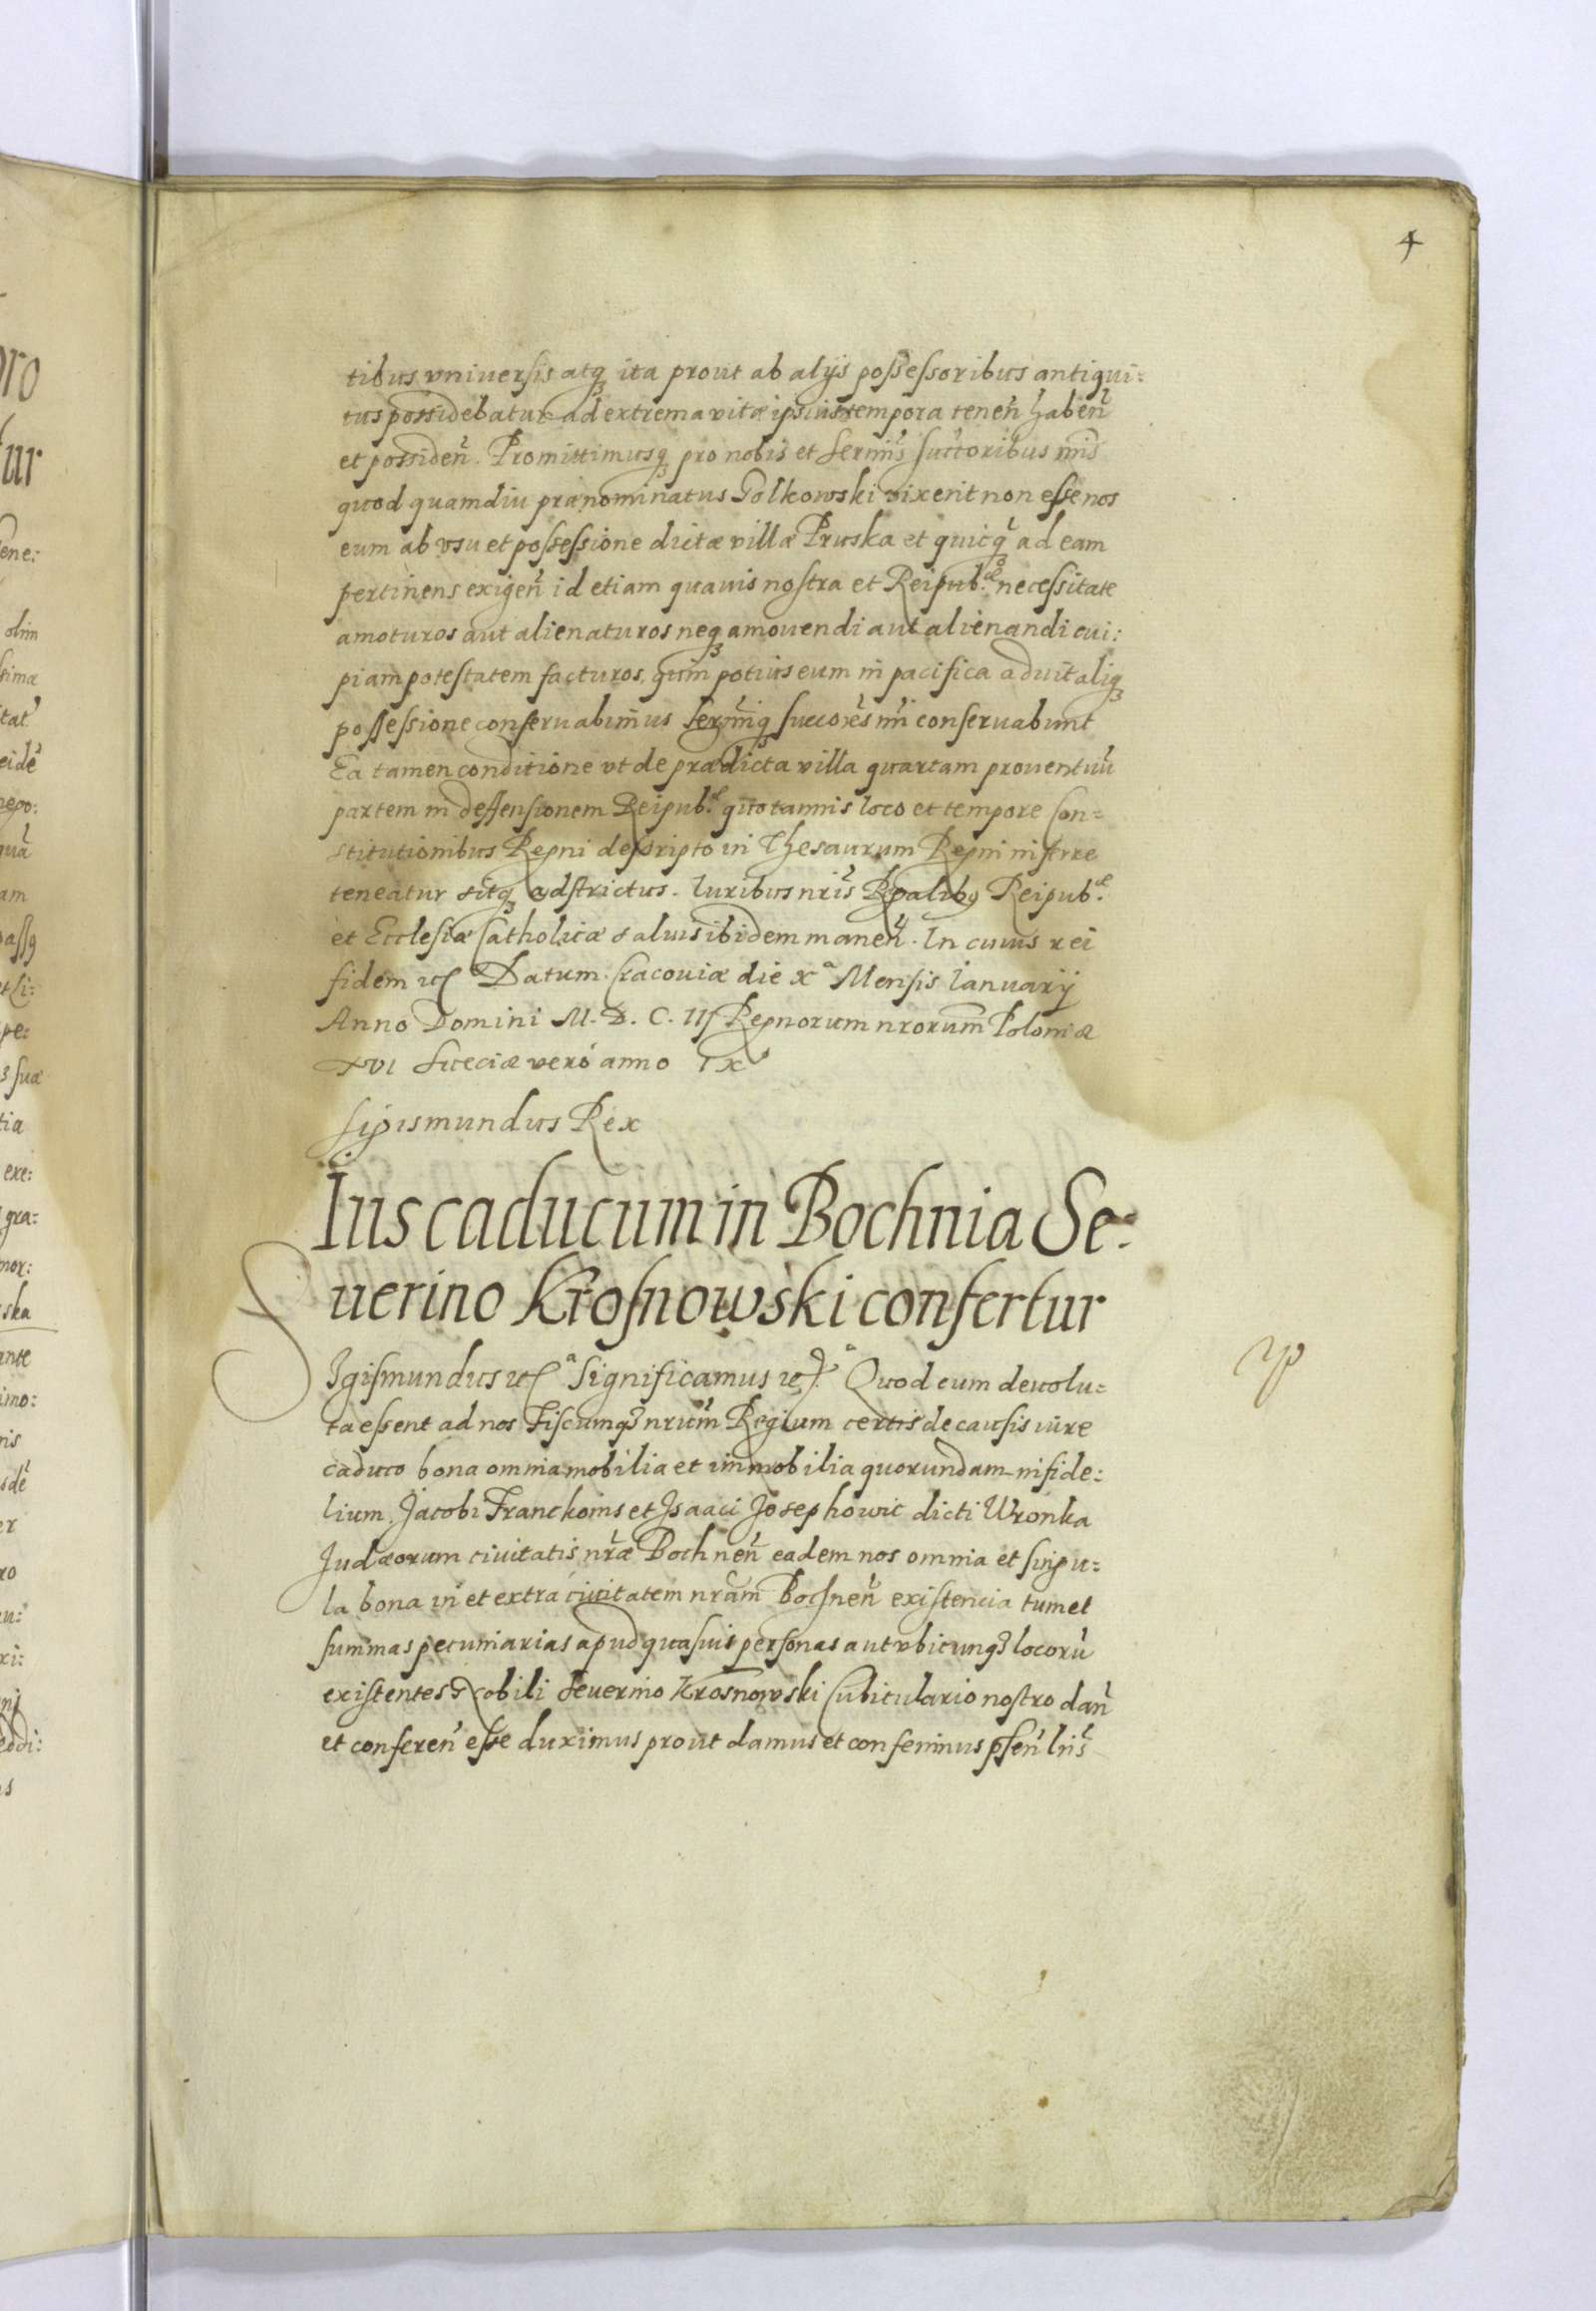 4
tibus vniuersis atq ita prout ab alijs possessoribus antiqui:
tus possidebatur ad extrema vitæ ipsius tempora tenen̄ haben̄
et possiden̄. Promittimusq pro nobis et Sermis̄ suctoribus nris̄
quod quamdiu prænominatus Golkowski vixerit non esse nos
eum ab vsu et possessione dictæ villæ Pruska et quicq̄ ad eam
pertinens exigen̄ id etiam quauis nostra et Reipub.cæ necessitate
amoturos aut alienaturos neq amouendi aut alienandi cui:
piam potestatem facturos, quin potius eum in pacifica aduitaliq
possessione conseruabimus Sermiq̄ succores̄ nri̅ conseruabunt
Ea tamen conditione vt de prædicta villa quartam prouentuū
partem in deffensionem Reipub.cæ quotannis loco et tempore Con=
stitutionibus Regni descripto in Thesaurum Regni inferre
teneatur sitq adstrictus. Iuribus nris̄ Regalibq Reipub.cæ
et Ecclesiæ Catholicæ saluis ibidem manen̄. In cuius rei
fidem etc Datum Cracouiæ die xa Mensis Ianuarij
Anno Domini M. D. C. III Regnorum nrorum̄ Poloniæ
XVI Sueciæ vero anno IX
Sigismundus Rex
Ius caducum in Bochnia Se=
uerino Krosnowski confertur
Sigismundus etc a Significamus etc. a Quod cum deuolu=
ta essent ad nos Fiscumq3 nrum̄ Regium certis de causis iure
caduco bona omnia mobilia et immobilia quorundam infide:
lium Jacobi Franckoins et Isaaci Josephowic dicti Wronka
Judæorum ciuitatis nrǣ Bochnen̄ eadem nos omnia et singu=
la bona in et extra ciuitatem nram̄ Bochnen̄ existencia tum et
summas pecuniarias apud quasuis personas aut vbicunq3 locorū
existentes Nobili Seuerino Krosnowski Cubiculario nostro dan̄
et conferen̄ esse duximus prout damus et conferimus psen̄ lris̄